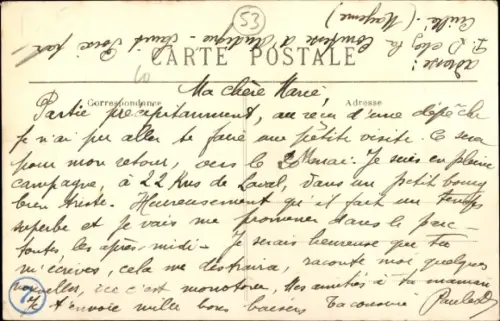 53
adresse:
P. D chez la Comtesse d'Andigné - Saint Poix par
Cuillé. (Mayenne)
CARTE POSTALE
Correspondance
Adresse
Ma chère Marie,
Partie précipitamment, au reçu d'une dépêche
je n'ai pu aller te faire une petite visite. Ce sera
pour mon retour, vers le 20 mai. Je suis en pleine
campagne, à 22 Kms de Laval, dans un petit bourg
bien triste. Heureusement qu'il fait un temps
superbe et je vais me promener dans le parc
toutes les après-midi. Je serais heureuse que tu
m'écrives, cela me distraira, raconte moi quelques
nouvelles, ici c'est monotone. Mes amitiés à ta maman
Je t'envoie mille bons baisers